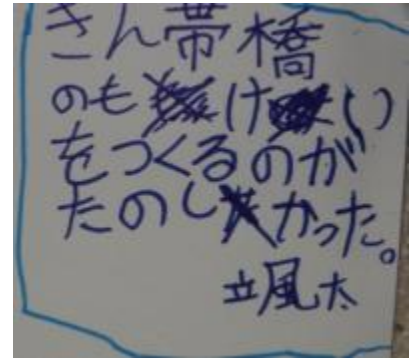 きん帯橋
のもけい
をつくるのが
たのしかった。
颯太